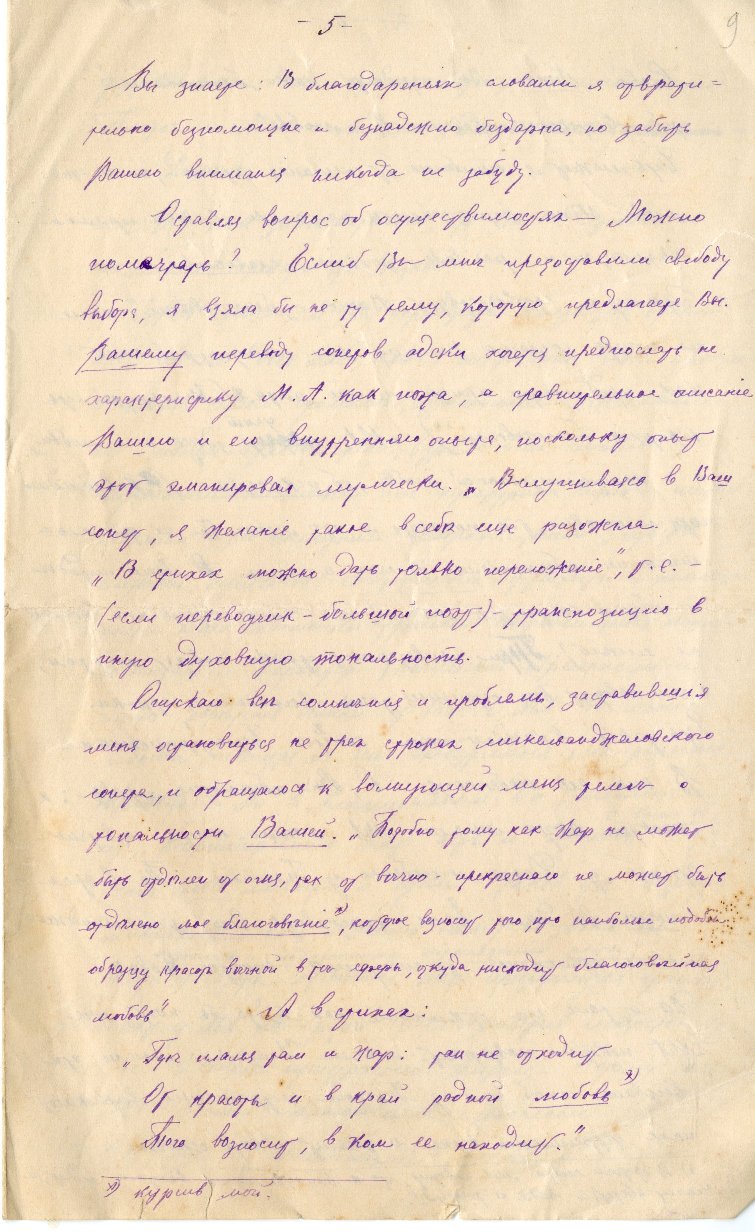 - 5 -
9
Вы знаете: В благодареньях словами я отврати=
тельно беспомощна и безнадежно бездарна, но забыть
Вашего вниманія никогда не забуду.
Оставляя вопрос об осуществимостях — Можно
помечтать? Еслиб Вы мнѣ предоставили свободу
выбора, я взяла бы не ту тему, которую предлагаете Вы.
Вашему переводу сонетов адски хочется предпослать не
характеристику М. А. как поэта, а сравнительное описаніе
Вашего и его внутренняго опыта, поскольку опыт
этот эманировал музически. Вслушиваясь в Ваш
сонет, я желаніе такое в себѣ еще разожгла.
„В стихах можно дать только переложеніе", т. е. –
(если переводчик – большой поэт) – транспозицію в
иную духовную тональность.
Опускаю всѣ сомнѣнія и проблемы, заставившія
меня остановиться на трех строках микельанджеловского
сонета, и обращаюсь к волнующей меня темѣ о
тональности Вашей. „Подобно тому как жар не может
быть отдѣлен от огня, так от вѣчно-прекраснаго не может быть
отдѣлено мое благоговѣніе *), которое возносит того, кто наиболѣе подобен
образцу красоты вѣчной в тѣ сферы, откуда нисходит благоговѣйная
любовь" А в стихах:
„Гдѣ пламя там и жар: так не отходит
От красоты и в край родной любовь *)
Того возносит, в ком ее находит."
*) курсив мой.